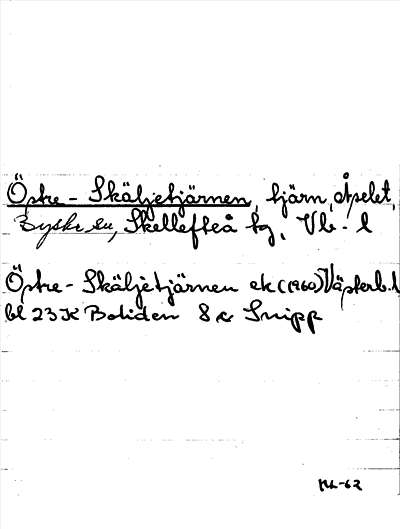 Östre-Skäljetjärnen, tjärn, Åselet,
Byske sn, Skellefteå tg, Vb. l
Östre-Skäljetjärnen ek (1960) Västerb. l
bl 23 K Boliden 8 c Snipp
ML-62